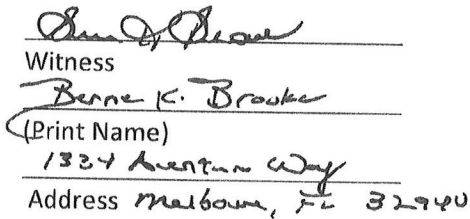 Witness
Berne K. Brooker
(Print Name)
1334 Aventura Way
Address Melbourne, FL 32940